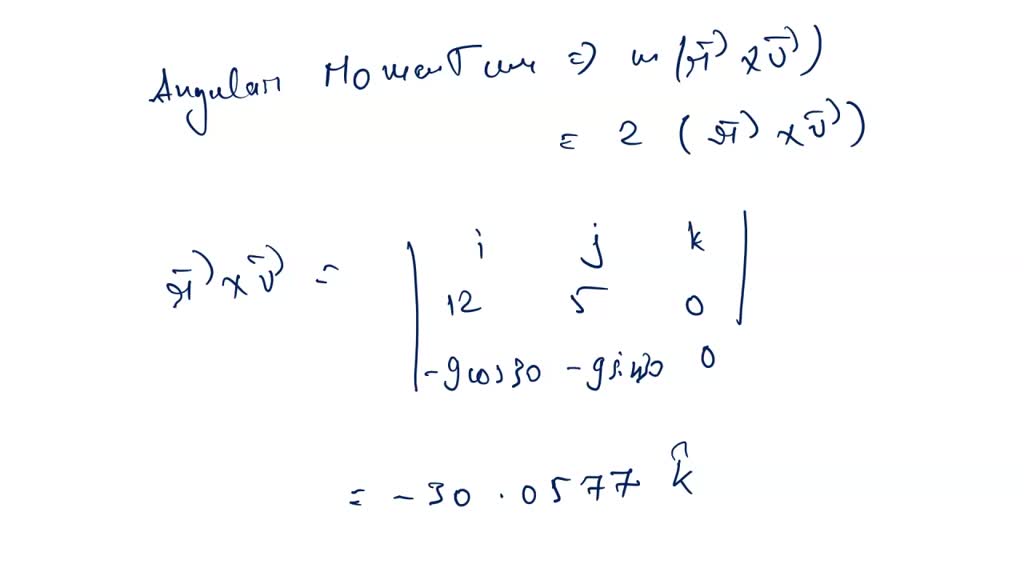 Angular Momentum ⇒ m (r⃗ × v⃗)
= 2 (r⃗ × v⃗)
r⃗ × v⃗ = | i j k |
12 5 0
-9cos30 -9sin30 0
= -30.0577 k̂